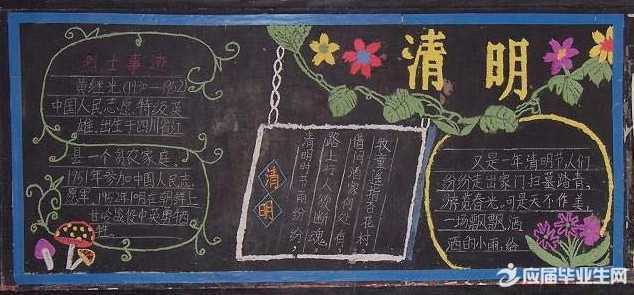 清明
烈士事迹
黄继光(1930—1952)
中国人民志愿特级英
雄,出生于四川省江
县一个贫农家庭,
1951年参加中国人民志
愿军,1952年10月在朝鲜上
甘岭战役中英勇牺
牲。
清明
清明时节雨纷纷,
路上行人欲断魂,
借问酒家何处有,
牧童遥指杏花村
又是一年清明节,人们
纷纷走出家门扫墓踏青,
游览春光,可是天不作美,
一场飘飘洒
洒的小雨,给
应届毕业生网